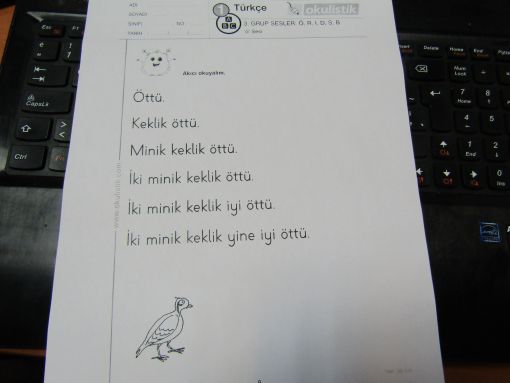 ADI
SOYADI
SINIFI NO
TARİH / /
1 Türkçe
A B C
okulistik
3. GRUP SESLER: Ö, R, I, D, S, B
Ö Sesi
Akıcı okuyalım.
Öttü.
Keklik öttü.
Minik keklik öttü.
İki minik keklik öttü.
İki minik keklik iyi öttü.
İki minik keklik yine iyi öttü.
www.okulistik.com
Esc
CapsLk
Ctrl
Fn
Delete
Home
End
Num
Lock
7
Home
8
1
End
2
0
Ins